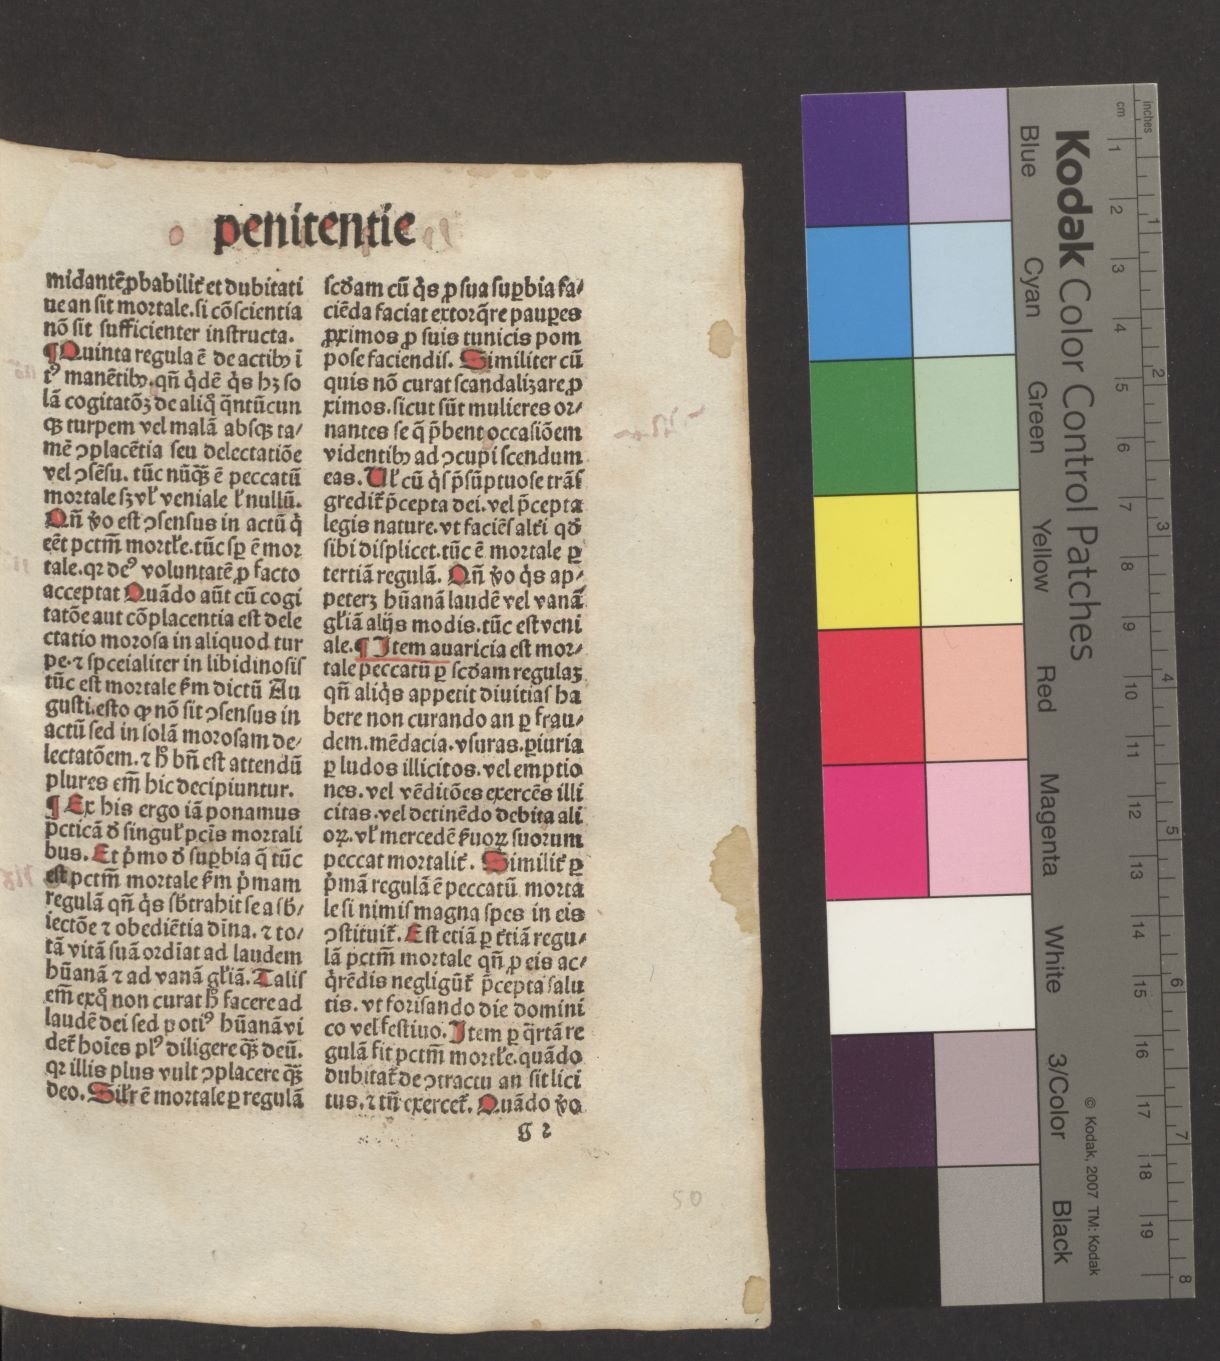 penitentie
midantē ꝓbabilit̄ et dubitati
ue an sit mortale. si cōscientia
nō sit sufficienter instructa.
¶ Quinta regula ē de actibꝫ ī
tꝰ manētibꝫ. qn̄ q̇dē q̇s hꝫ so
lā cogitatōꝫ de aliq̇ q̄ntūcun
qꝫ turpem vel malā absqꝫ ta⸗
mē ꝯplacētia seu delectatiōe
vel ꝯsēsu. tūc nūq̄ꝫ ē peccatū
mortale sꝫ vl̄ veniale l̄ nullū.
Qn̄ v̊o est ꝯsensus in actū q̇
eēt pctm̄ mortl̄e. tūc sꝑ ē mor
tale. qꝛ deꝰ voluntatē ꝓ facto
acceptat Quādo aūt cū cogi
tatōe aut cōplacentia est dele
ctatio morosa in aliquod tur
pe. ⁊ spceialiter in libidinosis
tūc est mortale ẜm dictū Au
gusti. esto ꝙ nō sit ꝯsensus in
actū sed in solā morosam de⸗
lectatōem. ⁊ h̄ bn̄ est attendū
plures em̄ hic decipiuntur.
¶ Ex his ergo iā ponamus
pcticā d̄ singul̄ pctīs mortali
bus. Et p̄mo d̄ suꝑbia q̄ tūc
est pctm̄ mortale ẜm p̄mam
regulā qn̄ q̇s sb̄trahit se a sb̄⸗
iectōe ⁊ obediētia diīna. ⁊ to⸗
tā vitā suā ordīat ad laudem
hūanā ⁊ ad vanā gl̄iā. Talis
em̄ exq̇ non curat h̄ facere ad
laudē dei sed potiꝰ hūanā vi
det̄ hoīes plꝰ diligere q̄ꝫ deū.
qꝛ illis plus vult ꝯplacere q̄ꝫ
deo. Sil̄r ē mortale ꝑ regulā
scd̄am cū q̇s ꝓ sua suꝑbia fa⸗
ciēda faciat extorq̄re pauꝑes
ꝓximos ꝓ suis tunicis pom
pose faciendis. Similiter cū
quis nō curat scandalizare ꝓ
ximos. sicut sūt mulieres or⸗
nantes se q̄ p̄bent occasiōem
videntibꝫ ad ꝯcupiscendum
eas. Ul̄ cū q̇s p̄sūptuose trās
gredit̄ p̄cepta dei. vel p̄cepta
legis nature. vt faciēs alt̄i qd̄
sibi displicet. tūc ē mortale ꝑ
tertiā regulā. Qn̄ v̊o q̇s ap⸗
peterꝫ hūanā laudē vel vanā
gl̄iā alijs modis. tūc est veni
ale. ¶ Item auaricia est mor⸗
tale peccatū ꝑ scd̄am regulaꝫ
qn̄ aliq̇s appetit diuitias ha
bere non curando an ꝑ frau⸗
dem. mēdacia. vsuras. ꝑiuria
ꝑ ludos illicitos. vel emptio
nes. vel vēditōes exercēs illi
citas. vel detinēdo debita ali
oꝝ. vl̄ mercedē ẜuoꝝ suorum
peccat mortalit̄. Similit̄ ꝑ
p̄mā regulā ē peccatū morta
le si nimis magna spes in eis
ꝯstituit̄. Est etiā ꝑ t̄tiā regu⸗
lā pctm̄ mortale qn̄ ꝓ eis ac⸗
q̇rēdis negligūt̄ p̄cepta salu
tis. vt forisando die domini
co vel festiuo. Item ꝑ q̄rtā re
gulā fit pctm̄ mortl̄e. quādo
dubitat̄ de ꝯtractu an sit lici
tus. ⁊ tn̄ exercet̄. Quādo v̊o
g 2
50
Kodak Color Control Patches
Blue
Cyan
Green
Yellow
Red
Magenta
White
3/Color
Black
© Kodak, 2007 TM: Kodak
cm 1 2 3 4 5 6 7 8 9 10 11 12 13 14 15 16 17 18 19
inches 1 2 3 4 5 6 7 8